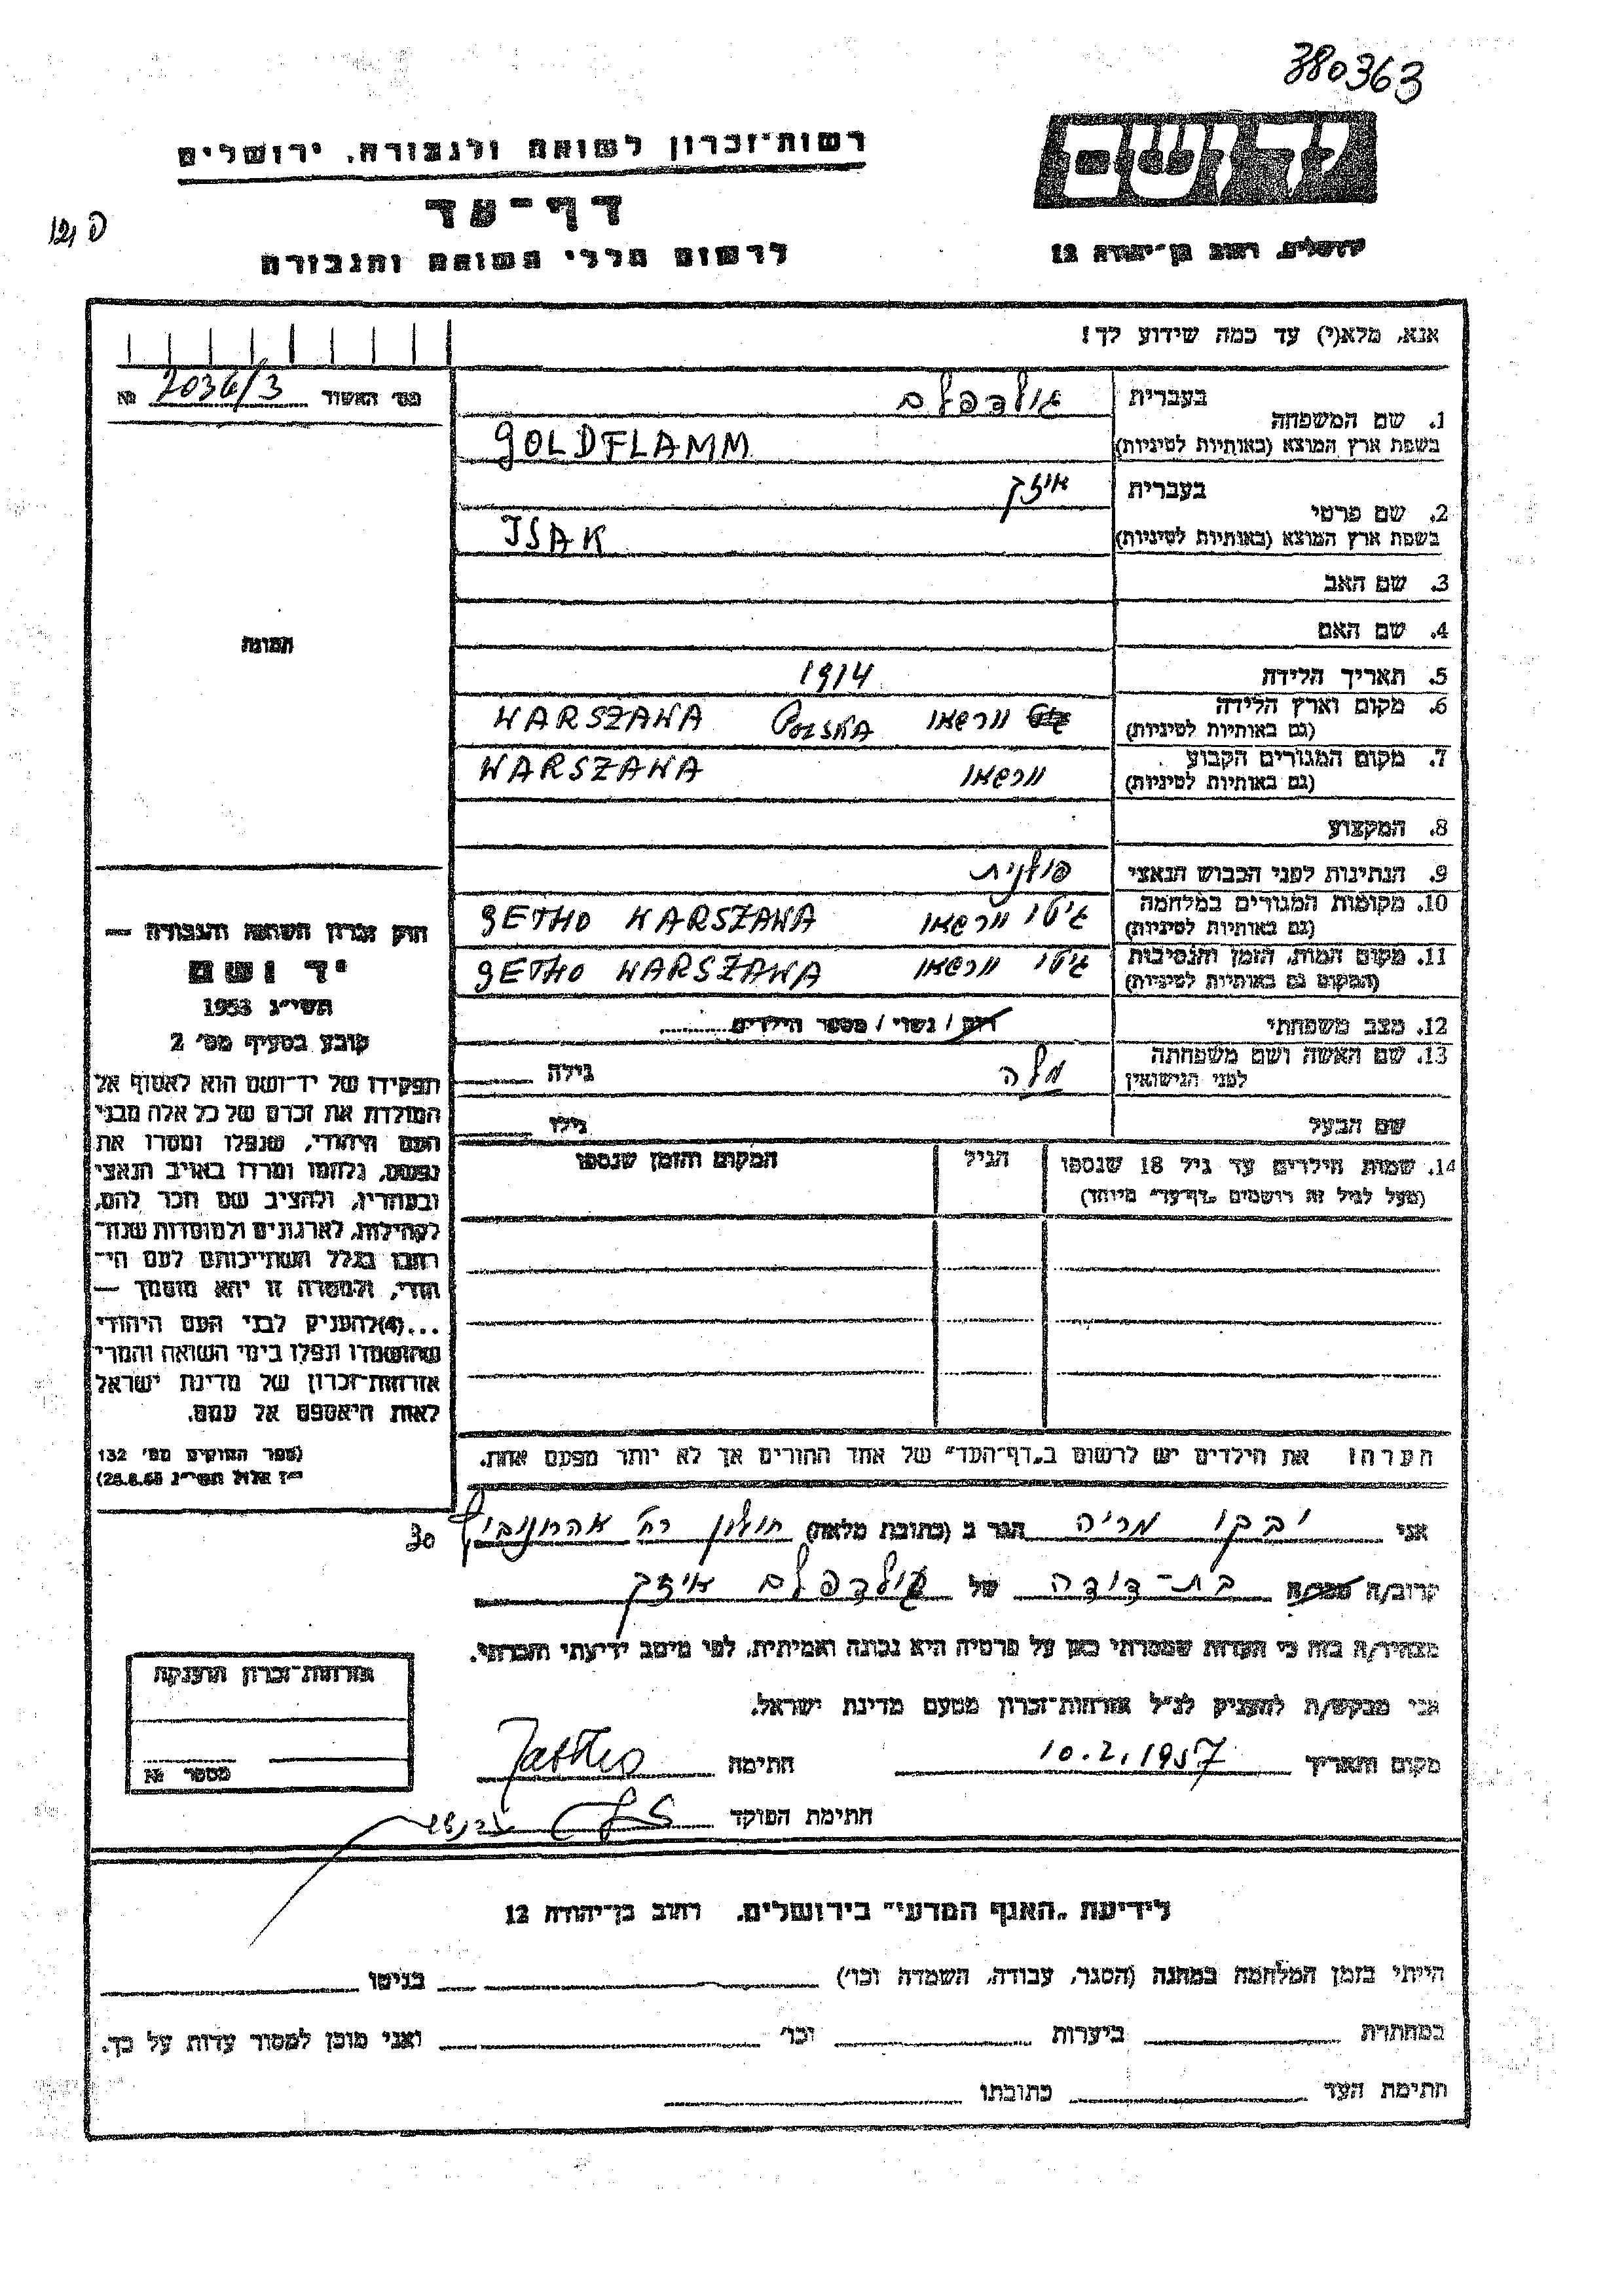 380363
יד ושם
ירושלים, רחוב בן־יהודה 12
רשות־זכרון לשואה ולגבורה, ירושלים
דף־עד
לרשום חללי השואה והגבורה
אנא, מלא(י) עד כמה שידוע לך!
מס׳ האשור 2036/3 №
1. שם המשפחה
בעברית גולדפלם
בשפת ארץ המוצא (באותיות לטיניות) GOLDFLAMM
2. שם פרטי
בעברית איזק
בשפת ארץ המוצא (באותיות לטיניות) ISAK
3. שם האב
4. שם האם
5. תאריך הלידה 1914
6. מקום וארץ הלידה
(גם באותיות לטיניות) ורשאו POLSKA WARSZAWA
7. מקום המגורים הקבוע
(גם באותיות לטיניות) ורשאו WARSZAWA
8. המקצוע
9. הנתינות לפני הכבוש הנאצי פולנית
10. מקומות המגורים במלחמה
(גם באותיות לטיניות) גיטו ורשאו GETHO WARSZAWA
11. מקום המות, הזמן והנסיבות
(המקום גם באותיות לטיניות) גיטו ורשאו GETHO WARSZAWA
12. מצב משפחתי רוק / נשוי / מספר הילדים
13. שם האשה ושם משפחתה
לפני הנישואין מלה גילה
שם הבעל גילו
14. שמות הילדים עד גיל 18 שנספו
(מעל לגיל זה רושמים „דף־עד״ מיוחד)
הגיל
המקום והזמן שנספו
הערה: את הילדים יש לרשום ב„דף־העד״ של אחד ההורים אך לא יותר מפעם אחת.
התמונה
חוק זכרון השואה והגבורה —
יד ושם
תשי״ג 1953
קובע בסעיף מס׳ 2
תפקידו של יד־ושם הוא לאסוף אל
המולדת את זכרם של כל אלה מבני
העם היהודי, שנפלו ומסרו את
נפשם, נלחמו ומרדו באויב הנאצי
ובעוזריו, ולהציב שם וזכר להם,
לקהילות, לארגונים ולמוסדות שנח־
רבו בגלל השתייכותם לעם הי־
הודי, ולמטרה זו יהא מוסמך —
...(4)להעניק לבני העם היהודי
שהושמדו ונפלו בימי השואה והמרי
אזרחות־זכרון של מדינת ישראל
לאות היאספם אל עמם.
(ספר החוקים מס׳ 132
י״ז אלול תשי״ג 28.8.53)
אני יבקו מריה הגר ב (כתובת מלאה) חולון רח׳ אהרונוביץ 30
קרוב/ה מכר/ה בת-דודה של גולדפלם איזק
מצהיר/ה בזה כי העדות שמסרתי כאן על פרטיה היא נכונה ואמיתית, לפי מיטב ידיעתי והכרתי.
אני מבקש/ת להעניק לנ״ל אזרחות־זכרון מטעם מדינת ישראל.
מקום ותאריך 10.2.1957 חתימה
חתימת הפוקד
אזרחות־זכרון הוענקה
מספר №
לידיעת „האגף המדעי״ בירושלים, רחוב בן־יהודה 12
הייתי בזמן המלחמה במחנה (הסגר, עבודה, השמדה וכו׳) בגיטו
במחתרת ביערות וכו׳ ואני מוכן למסור עדות על כך.
חתימת העד כתובתו